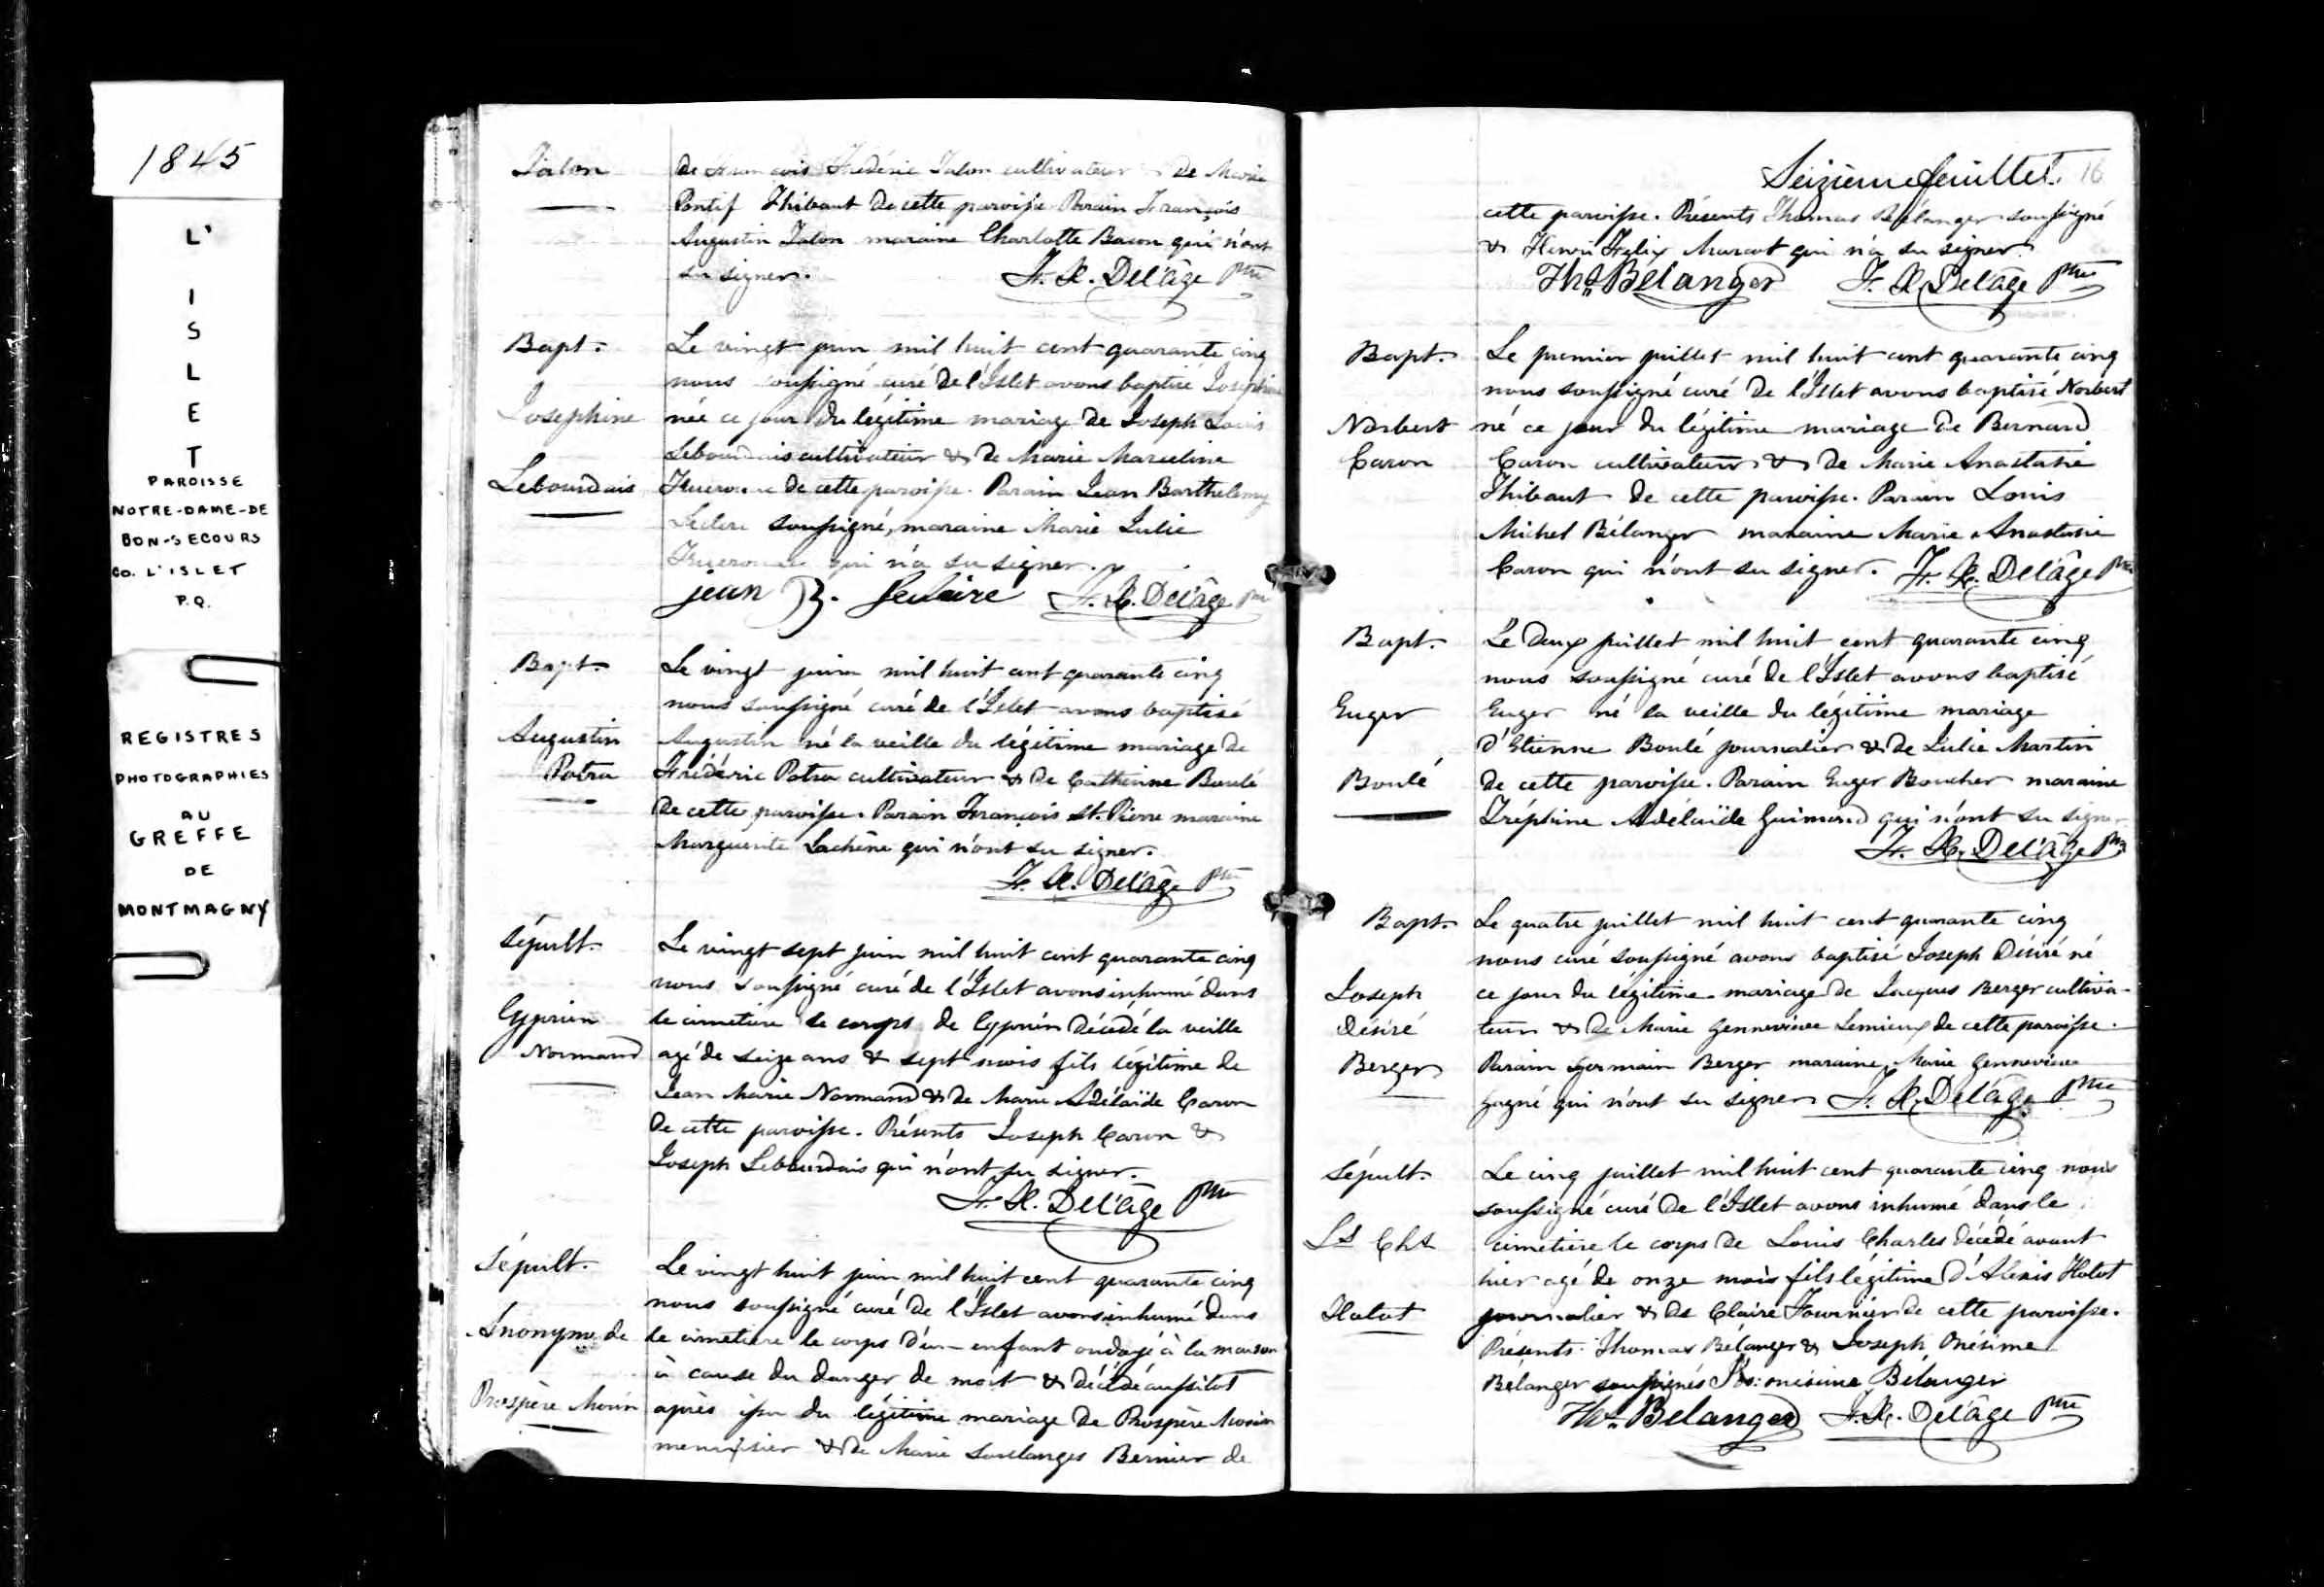 1845
L'
I
S
L
E
T
PAROISSE
NOTRE-DAME-DE
BON-SECOURS
CO. L'ISLET
P.Q.
REGISTRES
PHOTOGRAPHIES
AU
GREFFE
DE
MONTMAGNY
Talon
de François Frédéric Talon cultivateur & de Marie
Pontif Thibaut de cette paroisse. Parain François
Augustin Talon maraine Charlotte Bacon qui n'ont
su signer. F. X. Delâge Ptre
Bapt.
Josephine
Lebourdais
Le vingt juin mil huit cent quarante cinq
nous soussigné curé de l'Islet avons baptisé Josephine
née ce jour du légitime mariage de Joseph Louis
Lebourdais cultivateur & de Marie Marceline
de cette paroisse. Parain Jean Barthelemy
Leclerc soussigné, maraine Marie Julie
qui n'a su signer.
jean B. Leclaire F. X. Delâge Ptre
Bapt.
Augustin
Potra
Le vingt juin mil huit cent quarante cinq
nous soussigné curé de l'Islet avons baptisé
Augustin né la veille du légitime mariage de
Frédéric Potra cultivateur & de Catherine Boulé
de cette paroisse. Parain François St. Pierre maraine
Marguerite Lachêne qui n'ont su signer.
F. X. Delâge Ptre
Sépult.
Cyprien
Normand
Le vingt sept juin mil huit cent quarante cinq
nous soussigné curé de l'Islet avons inhumé dans
le cimetière le corps de Cyprien décédé la veille
agé de seize ans & sept mois fils légitime de
Jean Marie Normand & de Marie Adélaïde Caron
de cette paroisse. Présents Joseph Caron &
Joseph Lebourdais qui n'ont su signer.
F. X. Delâge Ptre
Sépult.
Anonyme de
Prospère Morin
Le vingt huit juin mil huit cent quarante cinq
nous soussigné curé de l'Islet avons inhumé dans
le cimetière le corps d'un enfant ondoyé à la maison
à cause du danger de mort & décédé aussitot
après issu du légitime mariage de Prospère Morin
menuisier & de Marie Soulanges Bernier de
Seizième feuillet. 16
cette paroisse. Présents Thomas Bélanger soussigné
& Henri Felix Marcot qui n'a su signer.
Ths Bélanger F. X. Delâge Ptre
Bapt.
Norbert
Caron
Le premier juillet mil huit cent quarante cinq
nous soussigné curé de l'Islet avons baptisé Norbert
né ce jour du légitime mariage de Bernard
Caron cultivateur & de Marie Anastasie
Thibaut de cette paroisse. Parain Louis
Michel Bélanger maraine Marie Anastasie
Caron qui n'ont su signer. F. X. Delâge Ptre
Bapt.
Euger
Boulé
Le deux juillet mil huit cent quarante cinq
nous soussigné curé de l'Islet avons baptisé
Euger né la veille du légitime mariage
d'Etienne Boulé journalier & de Julie Martin
de cette paroisse. Parain Euger Boucher maraine
Tréphine Adélaïde Guimond qui n'ont su signer
F. X. Delâge Ptre
Bapt.
Joseph
Désiré
Berger
Le quatre juillet mil huit cent quarante cinq
nous curé soussigné avons baptisé Joseph Désiré né
ce jour du légitime mariage de Jacques Berger cultiva-
teur & de Marie Gennevieve Lemieux de cette paroisse.
Parain Germain Berger maraine Marie Gennevieve
Gagné qui n'ont su signer F. X. Delâge Ptre
Sépult.
Ls Chs
Halot
Le cinq juillet mil huit cent quarante cinq nous
soussigné curé de l'Islet avons inhumé dans le
cimetière le corps de Louis Charles décédé avant
hier agé de onze mois fils légitime d'Alexis Halot
journalier & de Claire Fournier de cette paroisse.
Présents Thomas Bélanger & Joseph Onésime
Bélanger soussignés Jos: onésime Bélanger
Ths Bélanger F. X. Delâge Ptre